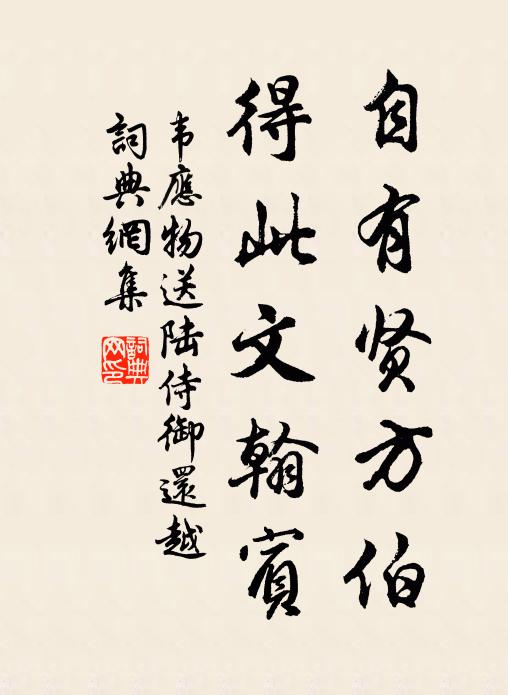 自有贤方伯
得此文翰賓
韦應物送陆侍御還越
詞典網集
詞典网印